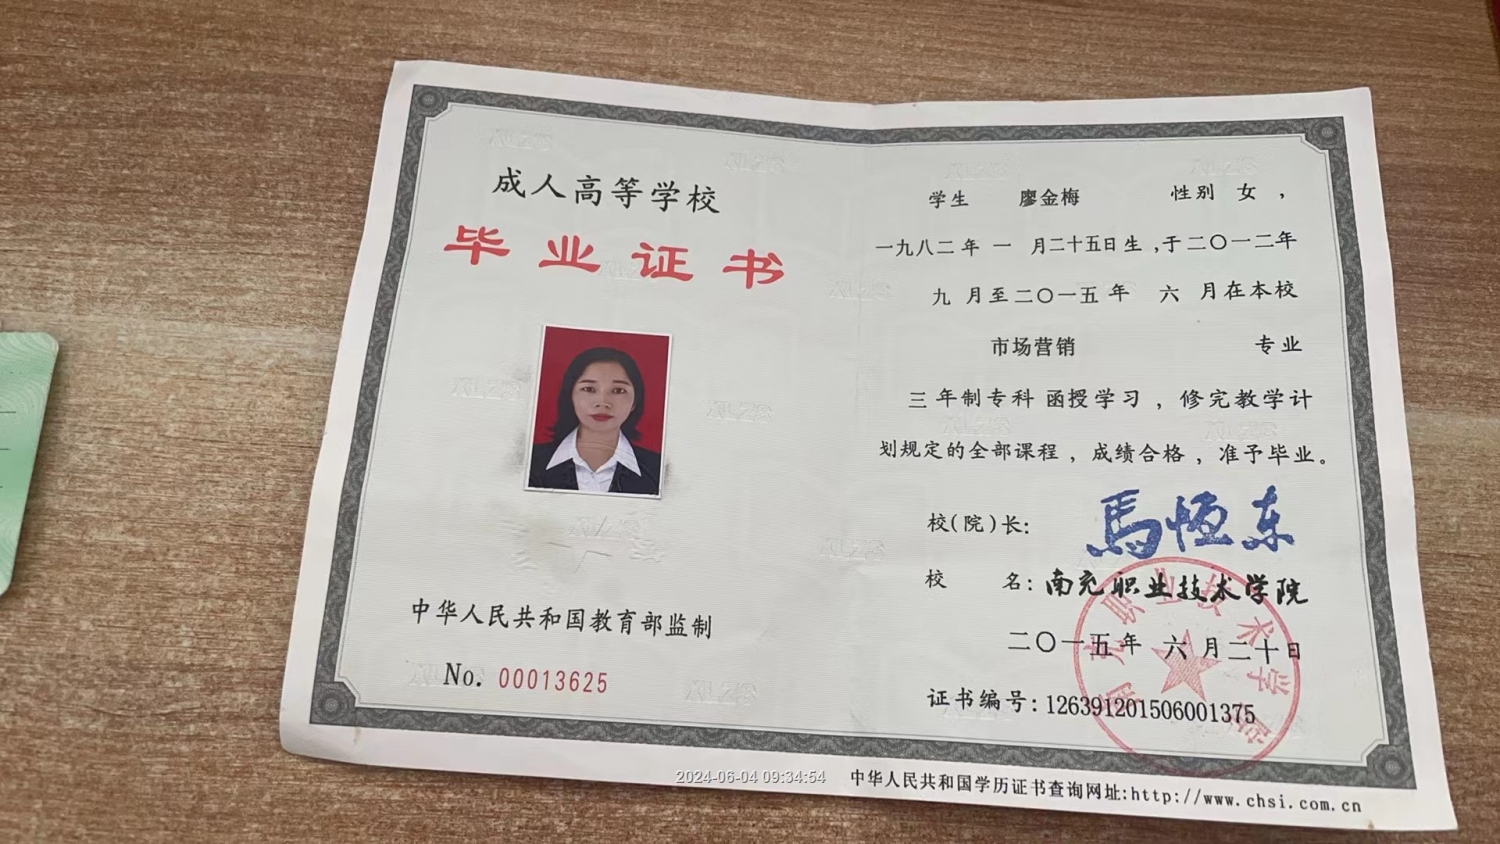 成人高等学校
毕业证书
中华人民共和国教育部监制
No. 00013625
学生 廖金梅 性别 女 ,
一九八二 年 一 月二十五日 生 ,于 二〇一二年
九 月至 二〇一五 年 六 月在本校
市场营销 专业
三 年制 专科 函授 学习 , 修完教学计
划规定的全部课程 , 成绩合格 , 准予毕业。
校(院)长: 馬恒东
校 名: 南充职业技术学院
二〇一五 年 六 月二十日
南充职业技术学院
证书编号: 126391201506001375
2024-06-04 09:34:54
中华人民共和国学历证书查询网址:http://www.chsi.com.cn